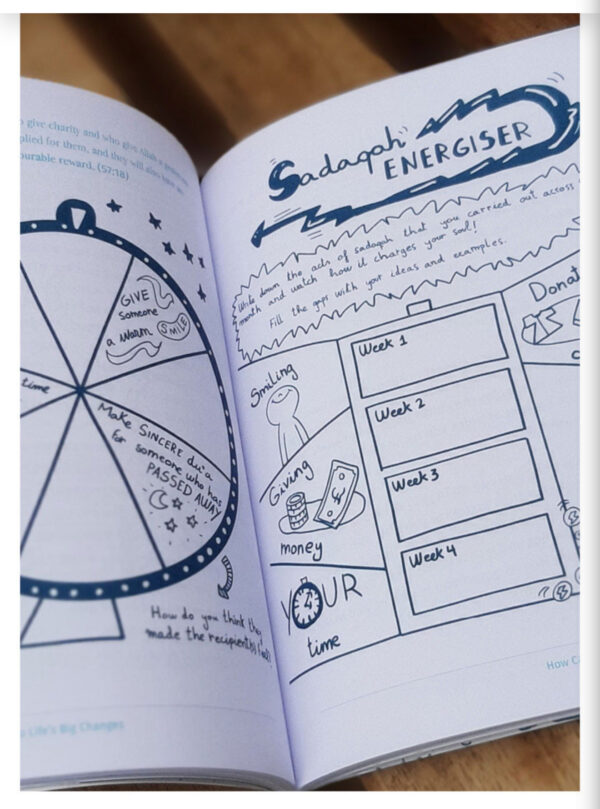 give charity and who give Allah a
plied for them, and they will also have an
ourable reward. (57:18)
GIVE
someone
a warm SMILE
time
Make SINCERE du'a
for someone who has
PASSED AWAY
How do you think they
made the recipient(s) feel?
Life's Big Changes
Sadaqah
ENERGISER
Write down the acts of sadaqah that you carried out across
month and watch how it charges your soul!
Fill the gaps with your ideas and examples.
Smiling
Giving
£
money
YOUR
time
Week 1
Week 2
Week 3
Week 4
Donat
How C